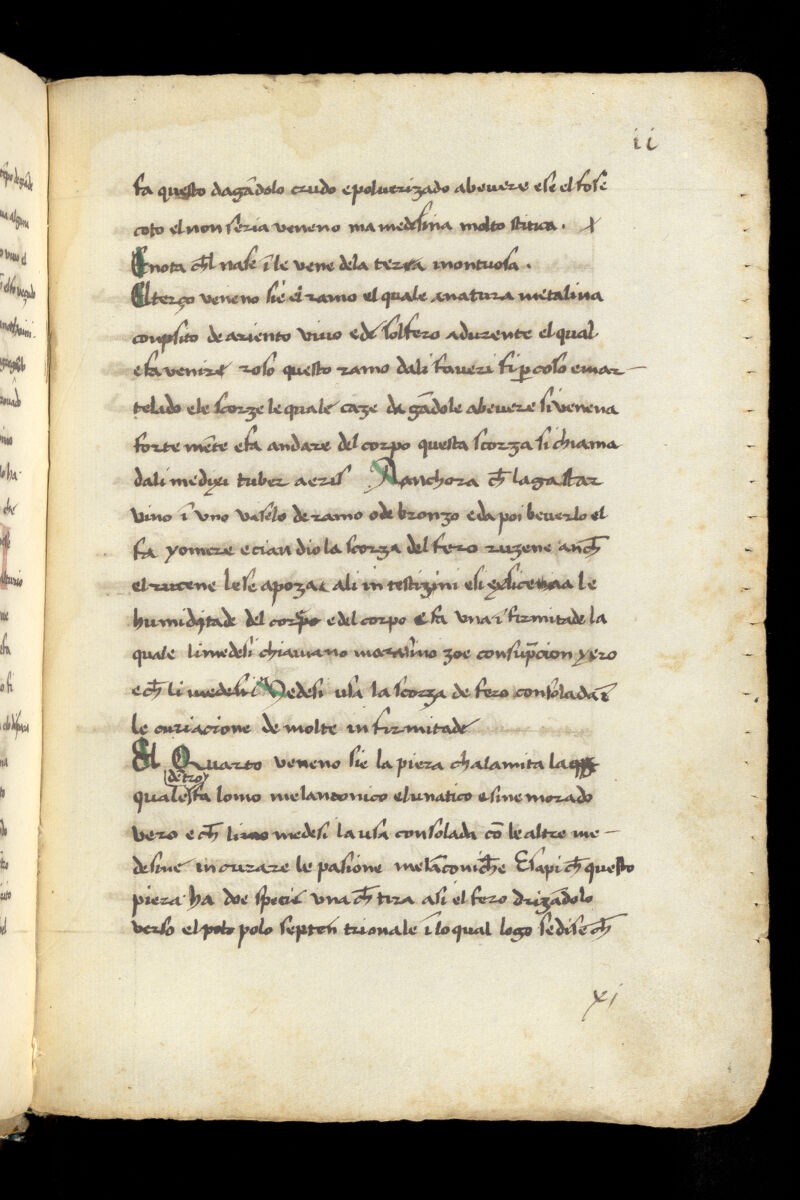 ii
fa questo dagãdolo crudo epoluerizado abeuere ese el fose
coto elnon seria veneno ma medesina molto stitica .
E nota ch̄l nasē ī le vene dela terra montuosa .
El terço veneno sie el ramo el quale anatura metalina
conpsito de ariento viuo ede solfero adurente el qual
efa venire roso questo ramo dali faueri fi p̲coso emar
telado ele scorze le quale caze dagãdole abeuere si venena
forte mẽte efa andare del corpo questa scorza si chiama
dali medixi tuber aeris Anchora ch̄ laga star
vino ī vno vaselo de ramo ode bronzo eda poi beuerlo el
fa yomere ecian dio la scorza del fero ruzene anch̄
el ruzene lese apoza ali intestizini esi
humiditade del corpo edel corpo efa vna īfirmitade la
quale li medesi chiamano marasino zoe consupcion
ech̄ li medesi Medesi usa la scorza de fero consolada ī
le curiacione de molte infirmitade
El Quarto veneno sie la piera chalamita la
detro
quale fa lomo melanconico elunatico esmemorado
vero ech̄ li medesi la usa consolada cō le altre me
desine incurare le pasione melãconich̄e Esapi ch̄ questo
piera ha doe specie una ch̄ tira asi el fero drizãdolo
verso el polo septentrionale ī lo qual logo se dise ch̄
xi